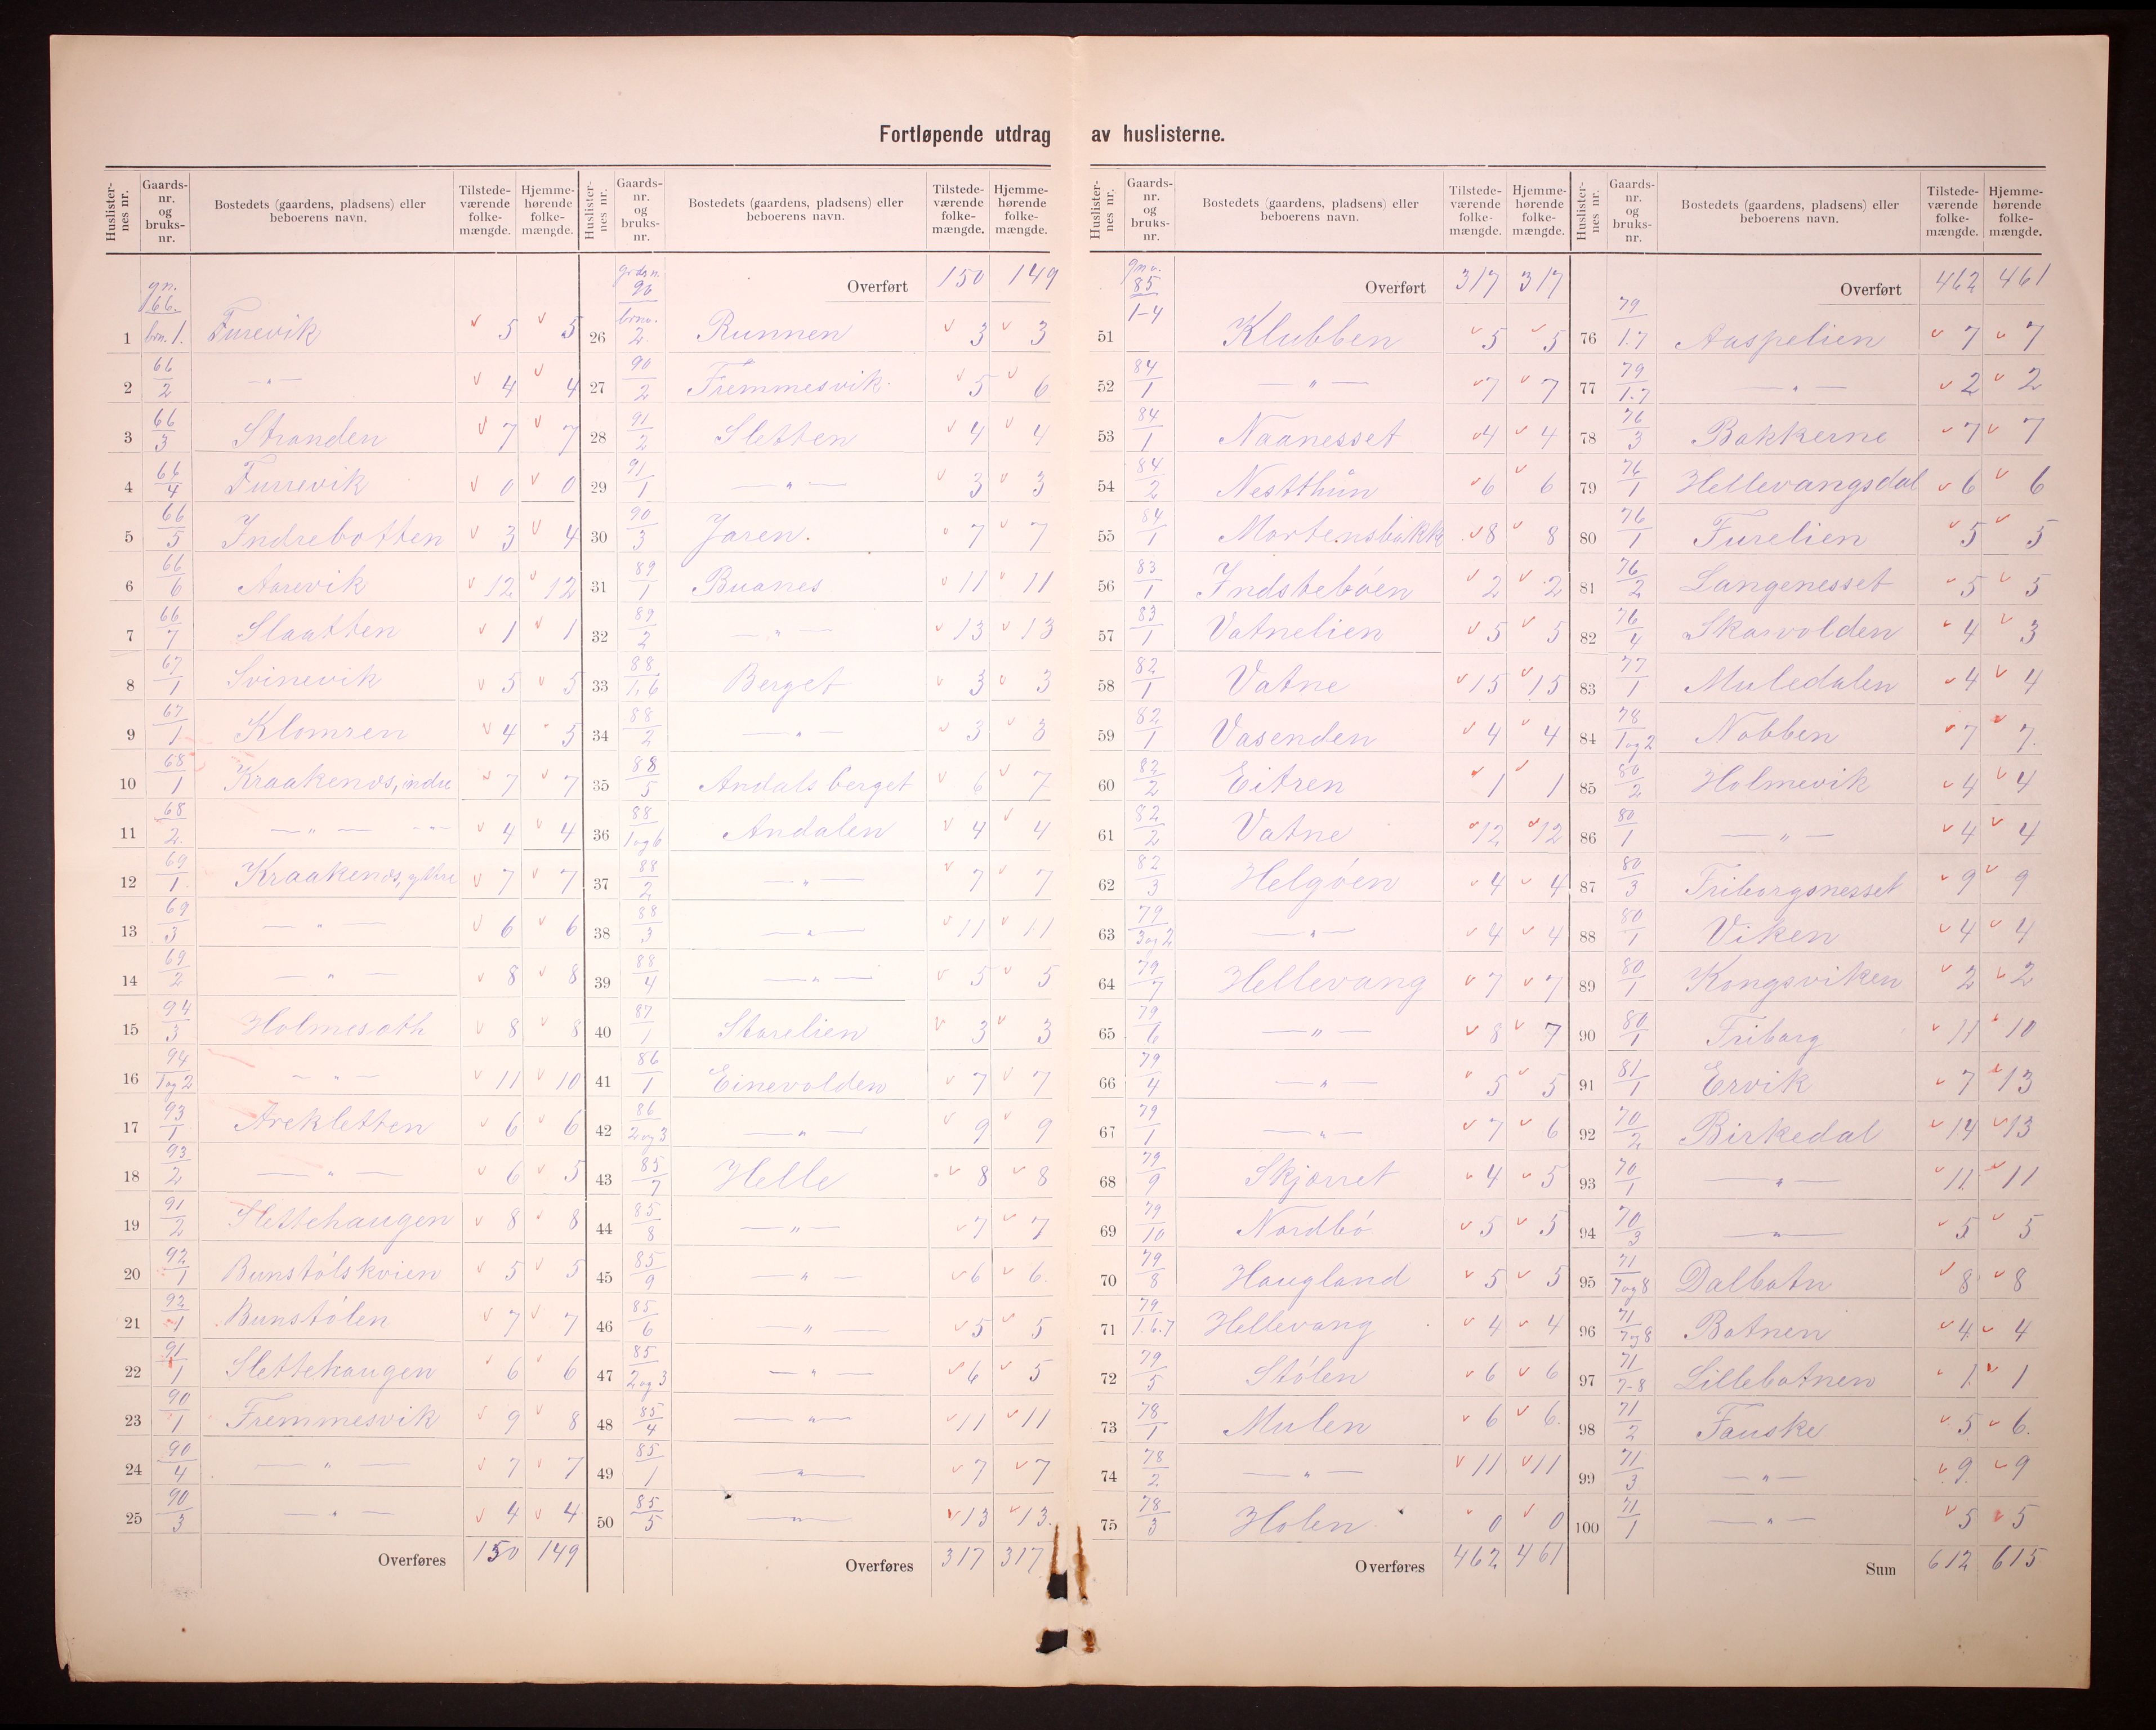 Fortløpende utdrag av huslisterne.
Huslister-nes nr. Gaards-nr. og bruks-nr. Bostedets (gaardens, pladsens) eller beboerens navn. Tilstede-værende folke-mængde. Hjemme-hørende folke-mængde.
gn. 66.
1 brn. 1. Furevik 5 5
2 66/2 —"— 4 4
3 66/3 Stranden 7 7
4 66/4 Furrevik 0 0
5 66/5 Indrebotten 3 4
6 66/6 Aarevik 12 12
7 66/7 Slaatten 1 1
8 67/1 Svinevik 5 5
9 67/1 Klomren 4 5
10 68/1 Kraakenæs, indre 7 7
11 68/2. —"— -"- 4 4
12 69/1. Kraakenæs, yttre 7 7
13 69/3 —"— 6 6
14 69/2 —"— 8 8
15 94/3 Holmesath 8 8
16 94/1 og 2 —"— 11 10
17 93/1 Arekletten 6 6
18 93/2 —"— 6 5
19 91/2 Slettehaugen 8 8
20 92/1 Bunstólskvien 5 5
21 92/1 Bunstólen 7 7
22 91/1 Slettehaugen 6 6
23 90/1 Fremmesvik 9 8
24 90/4 —"— 7 7
25 90/3 —"— 4 4
Overføres 150 149
Huslister-nes nr. Gaards-nr. og bruks-nr. Bostedets (gaardens, pladsens) eller beboerens navn. Tilstede-værende folke-mængde. Hjemme-hørende folke-mængde.
grdsn. 90 Overført 150 149
26 brno. 2. Runnen 3 3
27 90/2 Fremmesvik. 5 6
28 91/2 Sletten 4 4
29 91/1 —"— 3 3
30 90/3 Jaren. 7 7
31 89/1 Buanes 11 11
32 89/2 —"— 13 13
33 88/1, 6 Berget 3 3
34 88/2 —"— 3 3
35 88/5 Andals berget 6 7
36 88/1 og 6 Andalen 4 4
37 88/2 —"— 7 7
38 88/3 —"— 11 11
39 88/4 —"— 5 5
40 87/1 Storelien 3 3
41 86/1 Einevolden 7 7
42 86/2 og 3 —"— 9 9
43 85/7 Helle 8 8
44 85/8 —"— 7 7
45 85/9 —"— 6 6.
46 85/6 —"— 5 5
47 85/2 og 3 —"— 6 5
48 85/4 —"— 11 11
49 85/1 —"— 7 7
50 85/5 —"— 13 13.
Overføres 317 317
Huslister-nes nr. Gaards-nr. og bruks-nr. Bostedets (gaardens, pladsens) eller beboerens navn. Tilstede-værende folke-mængde. Hjemme-hørende folke-mængde.
gno. 85 Overført 317 317
51 1-4 Klubben 5 5
52 84/1 —"— 7 7
53 84/1 Naanesset 4 4
54 84/2 Nestthůn 6 6
55 84/1 Mortensbakk 8 8
56 83/1 Indstebóen 2 2
57 83/1 Vatnelien 5 5
58 82/1 Vatne 15 15
59 82/1 Vasenden 4 4
60 82/2 Eitren 1 1
61 82/2 Vatne 12 12
62 82/3 Helgóen 4 4
63 79/3 og 2 —"— 4 4
64 79/7 Hellevang 7 7
65 79/6 —"— 8 7
66 79/4 —"— 5 5
67 79/1 —"— 7 6
68 79/9 Skjorret 4 5
69 79/10 Nordbó 5 5
70 79/8 Haugland 5 5
71 79/1.6.7 Hellevang 4 4
72 79/5 Stólen 6 6
73 78/1 Mulen 6 6.
74 78/2 —"— 11 11
75 78/3 Holen 0 0
Overføres 462 461
Huslister-nes nr. Gaards-nr. og bruks-nr. Bostedets (gaardens, pladsens) eller beboerens navn. Tilstede-værende folke-mængde. Hjemme-hørende folke-mængde.
Overført 462 461
76 79/1.7 Aaspelien 7 7
77 79/1.7 —"— 2 2
78 76/3 Bakkerne 7 7
79 76/1 Hellevangsdal 6 6
80 76/1 Furelien 5 5
81 76/2 Langenesset 5 5
82 76/4 Skarvolden 4 3
83 77/1 Muledalen 4 4
84 78/1 og 2 Nobben 7 7.
85 80/2 Holmevik 4 4
86 80/1 —"— 4 4
87 80/3 Friborgsnesset 9 9
88 80/1 Viken 4 4
89 80/1 Kongsviken 2 2
90 80/1 Friborg 11 10
91 81/1 Ervik 7 13
92 70/2 Birkedal 14 13
93 70/1 —"— 11 11
94 70/3 —"— 5 5
95 71/7 og 8 Dalbotn 8 8
96 71/7 og 8 Botnen 4 4
97 71/7-8 Lillebotnen 1 1
98 71/2 Fauske 5 6.
99 71/3 —"— 9. 9
100 71/1 —"— 5 5
Sum 612 615